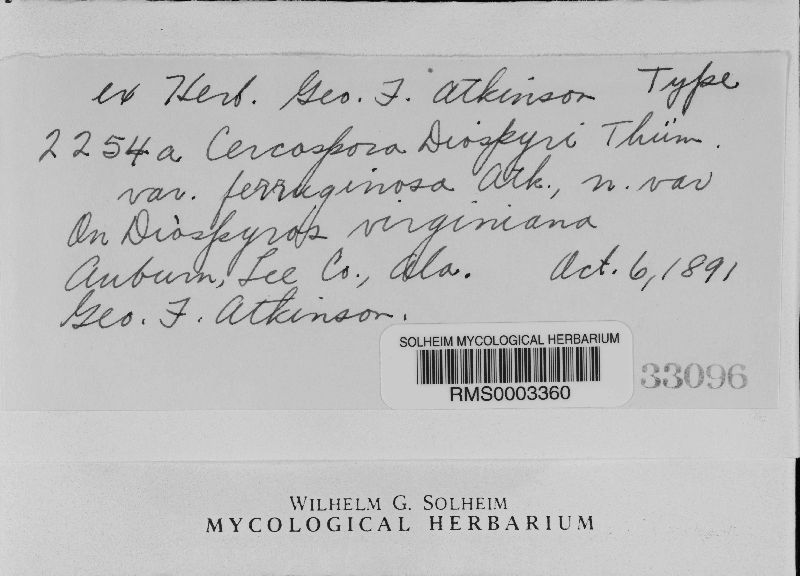 ex Herb. Geo. F. Atkinson Type
2254a Cercospora Diospyri Thüm.
var. ferruginosa Atk., n. var
On Diospyros virginiana
Auburn, Lee Co., Ala. Oct. 6, 1891
Geo. F. Atkinson.
SOLHEIM MYCOLOGICAL HERBARIUM
RMS0003360
33096
WILHELM G. SOLHEIM
MYCOLOGICAL HERBARIUM